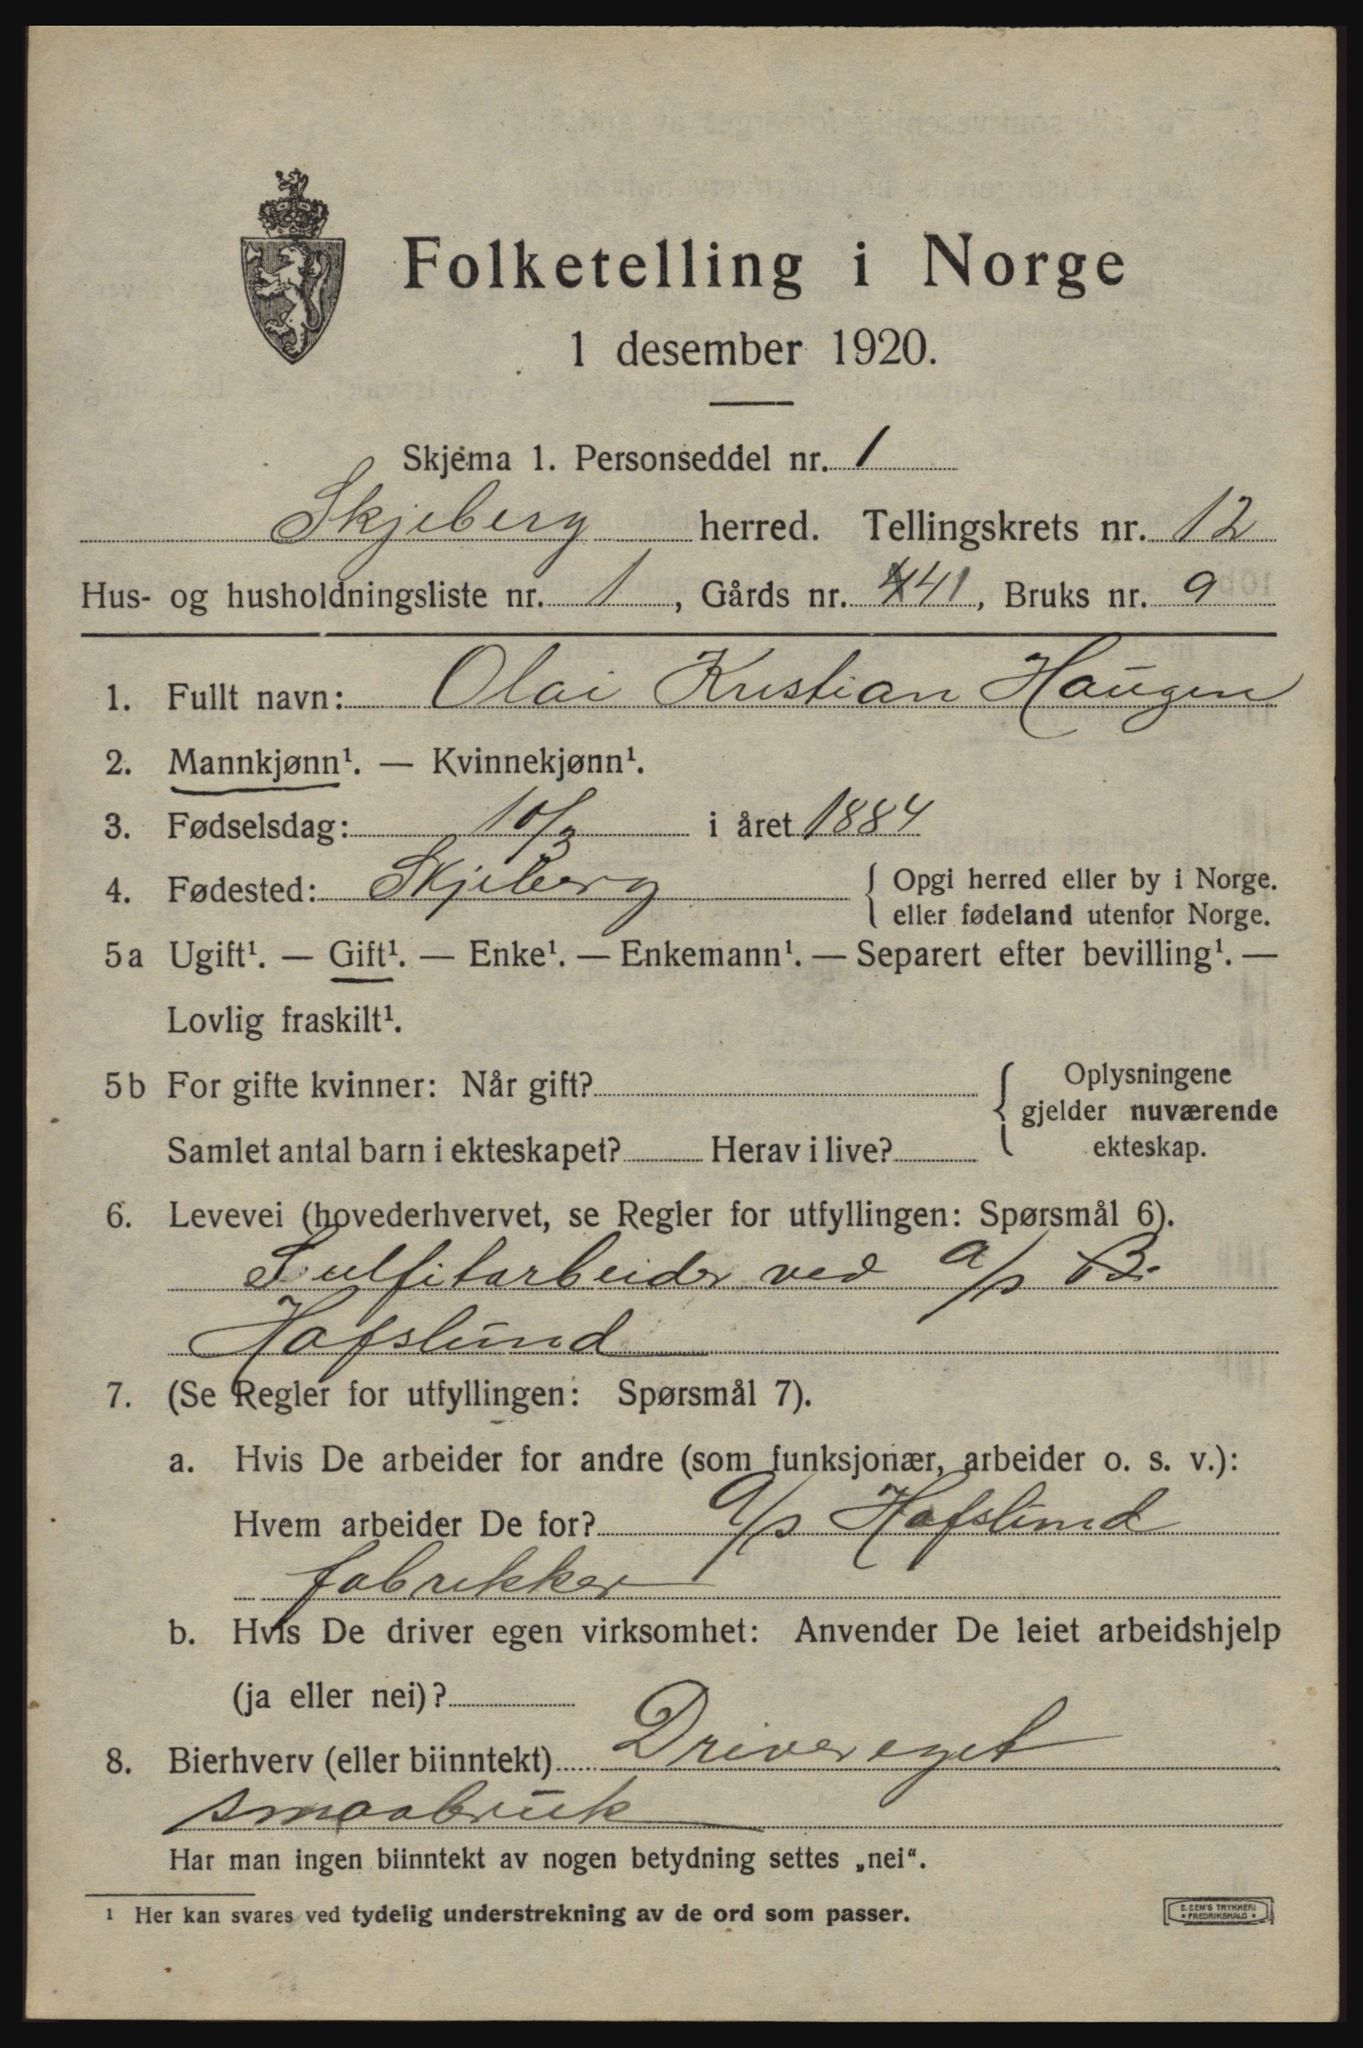 Folketelling i Norge
1 desember 1920.
Skjema 1. Personseddel nr. 1
Skjeberg herred. Tellingskrets nr. 12
Hus- og husholdningsliste nr. 1, Gårds nr. 41, Bruks nr. 9
1. Fullt navn: Olai Kristian Haugen
2. Mannkjønn¹. — Kvinnekjønn¹.
3. Fødselsdag: 10/3 i året 1884
4. Fødested: Skjeberg { Opgi herred eller by i Norge.
eller fødeland utenfor Norge.
5a Ugift¹. — Gift¹. — Enke¹. — Enkemann¹. — Separert efter bevilling¹. —
Lovlig fraskilt¹.
5b For gifte kvinner: Når gift? { Oplysningene
gjelder nuværende
ekteskap.
Samlet antal barn i ekteskapet? Herav i live?
6. Levevei (hovederhvervet, se Regler for utfyllingen: Spørsmål 6).
Sulfitarbeider ved a/s B.
Hafslund
7. (Se Regler for utfyllingen: Spørsmål 7).
a. Hvis De arbeider for andre (som funksjonær, arbeider o. s. v.):
Hvem arbeider De for? A/s Hafslund
fabrikker
b. Hvis De driver egen virksomhet: Anvender De leiet arbeidshjelp
(ja eller nei)?
8. Bierhverv (eller biinntekt) Driver eget
smaabruk
Har man ingen biinntekt av nogen betydning settes „nei“.
¹ Her kan svares ved tydelig understrekning av de ord som passer.
E. SEM'S TRYKKERI
• FREDRIKSHALD •